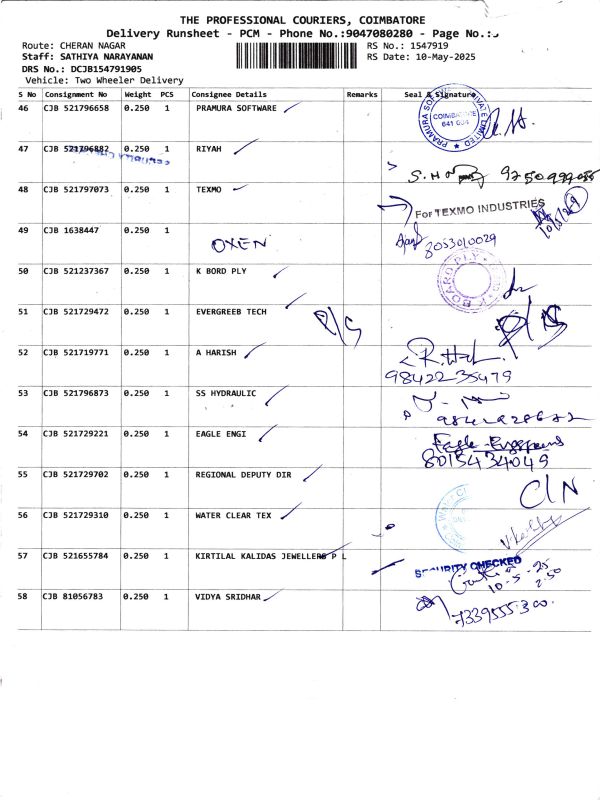 THE PROFESSIONAL COURIERS, COIMBATORE
Delivery Runsheet - PCM - Phone No.:9047080280 - Page No.:
Route: CHERAN NAGAR RS No.: 1547919
Staff: SATHIYA NARAYANAN RS Date: 10-May-2025
DRS No.: DCJB154791905
Vehicle: Two Wheeler Delivery
S No Consignment No Weight PCS Consignee Details Remarks Seal & Signature
46 CJB 521796658 0.250 1 PRAMURA SOFTWARE
COIMBATORE
47 CJB 521796882 0.250 1 RIYAH
48 CJB 521797073 0.250 1 TEXMO
For TEXMO INDUSTRIES
49 CJB 1638447 0.250 1
OXEN 8053010029
50 CJB 521237367 0.250 1 K BORD PLY
51 CJB 521729472 0.250 1 EVERGREEB TECH
52 CJB 521719771 0.250 1 A HARISH
98422 35479
53 CJB 521796873 0.250 1 SS HYDRAULIC
54 CJB 521729221 0.250 1 EAGLE ENGI
8015434049
55 CJB 521729702 0.250 1 REGIONAL DEPUTY DIR
56 CJB 521729310 0.250 1 WATER CLEAR TEX
57 CJB 521655784 0.250 1 KIRTILAL KALIDAS JEWELLERS P L
SECURITY CHECKED
10-5-25
2:50
58 CJB 81056783 0.250 1 VIDYA SRIDHAR
7339555300